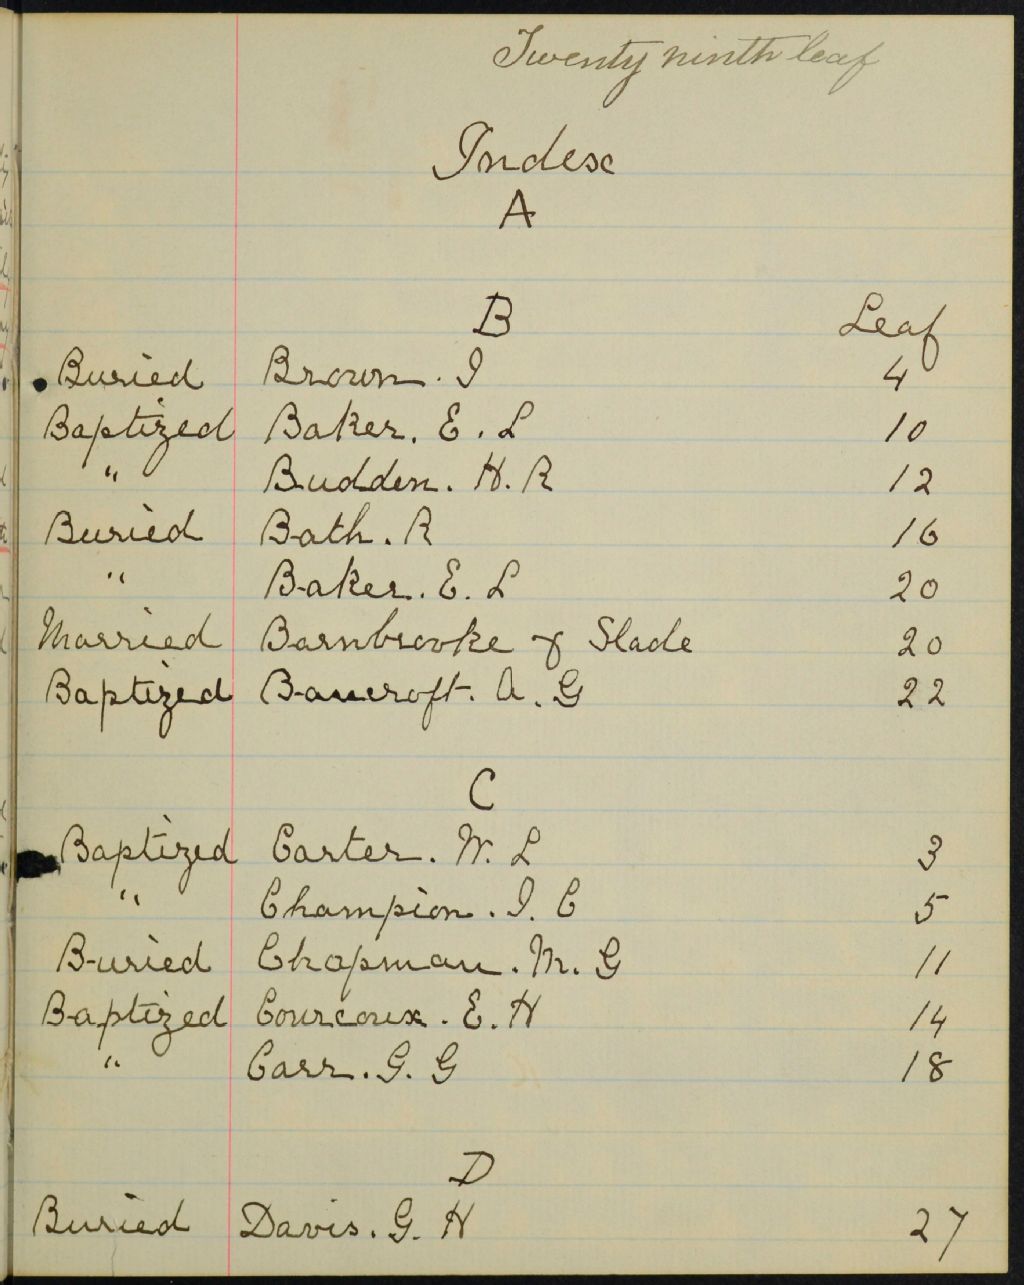 Twenty ninth leaf
Index
A
B Leaf
Buried Brown. I 4
Baptized Baker. E. L 10
" Budden. H. R 12
Buried Bath. R 16
" Baker. E. L 20
Married Barnbrooke & Slade 20
Baptized Bancroft. A. G 22
C
Baptized Carter. W. L 3
" Champion. I. C 5
Buried Chapman. M. G 11
Baptized Courcoux. E. H 14
" Carr. G. G 18
D
Buried Davis. G. H 27